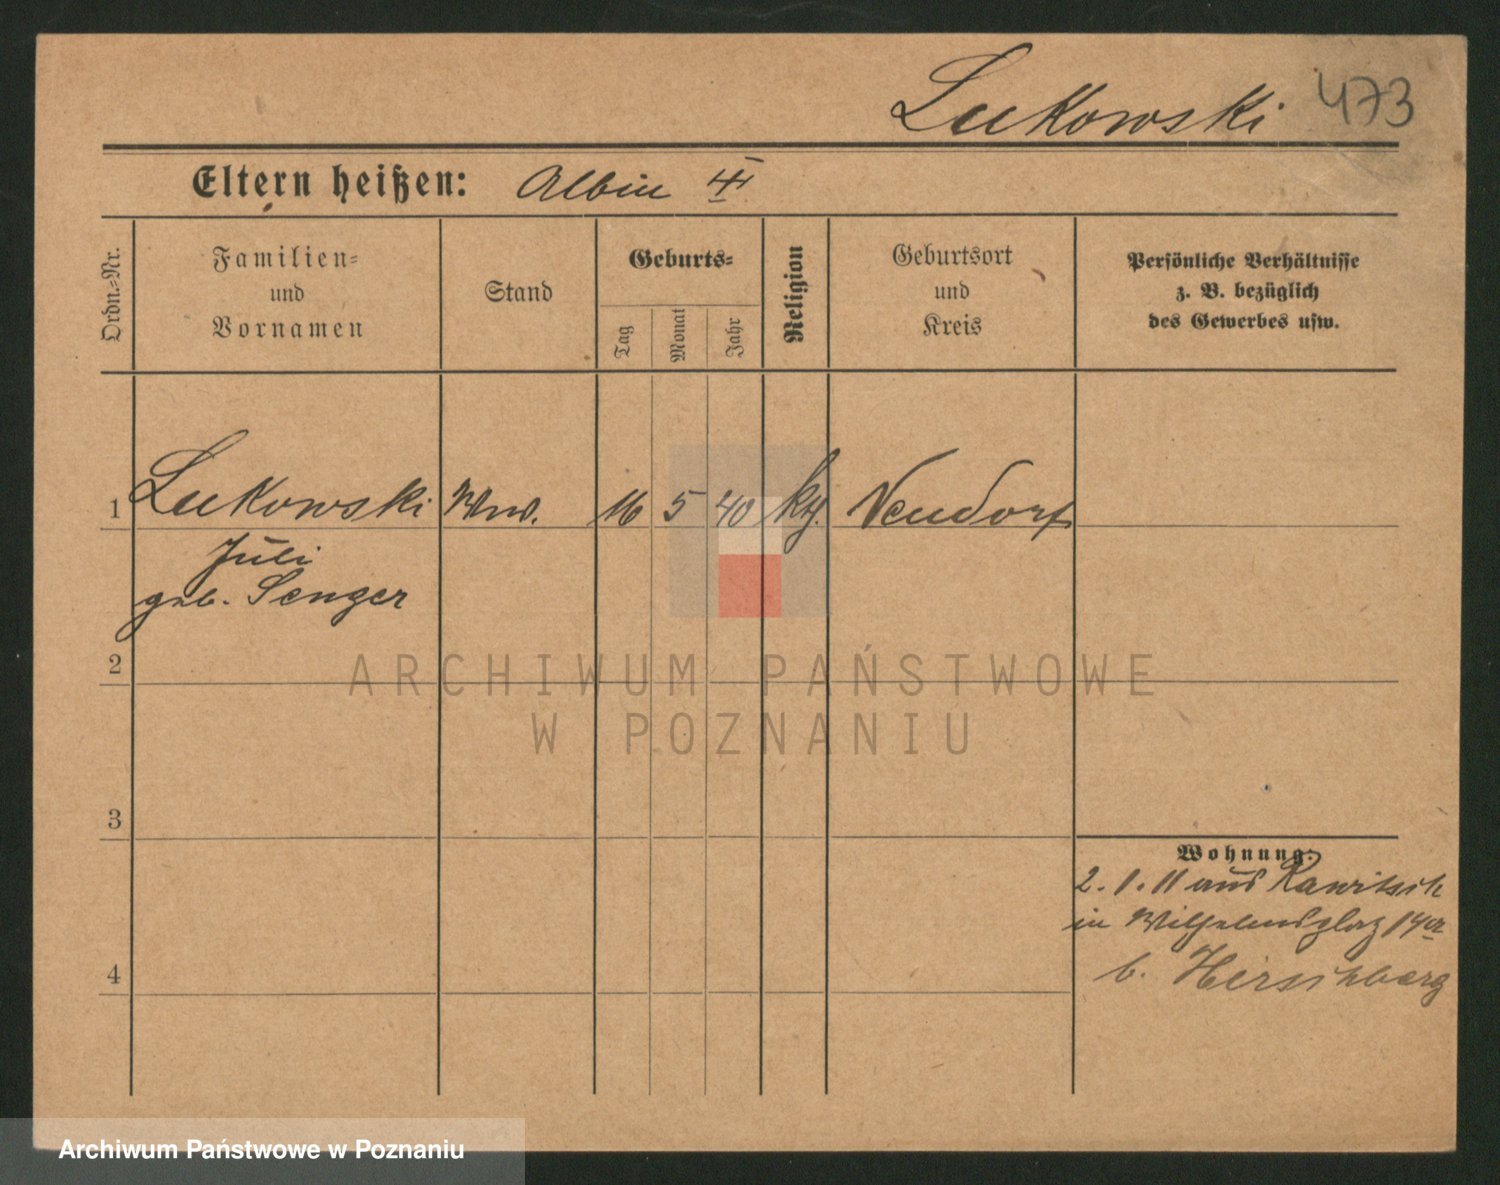 Lukowski 473
Eltern heißen: Albin III
Ordn.-Nr.
Familien-
und
Vornamen
Stand
Geburts-
Tag
Monat
Jahr
Religion
Geburtsort
und
Kreis
Persönliche Verhältnisse
z. B. bezüglich
des Gewerbes usw.
1 Lukowski Wwe. 16 5 40 kth. Neudorf
Juli
geb. Senger
2
ARCHIWUM PAŃSTWOWE
W POZNANIU
3
Wohnung:
2. 1. 11 aus Rawitsch
in Wilhelmsplatz 14
b. Hirschberg
4
Archiwum Państwowe w Poznaniu